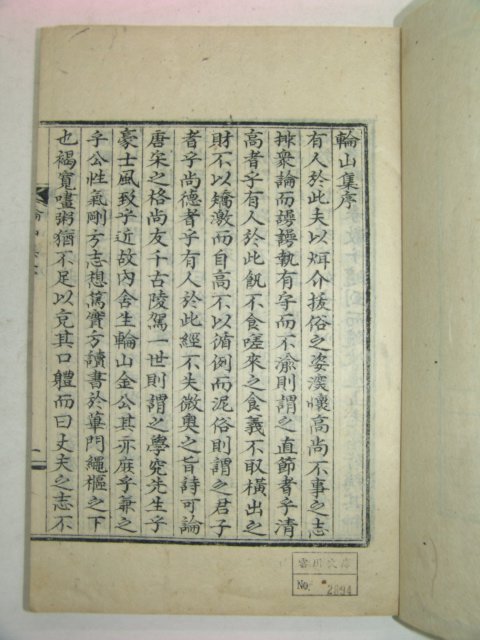 輪山集序
有人於此夫以耿介拔俗之姿漠懷高尙不事之志
排衆論而諤諤執有守而不渝則謂之直節者乎淸
高者乎有人於此飢不食嗟來之食義不取橫出之
財不以矯激而自高不以循例而泥俗則謂之君子
者乎尙德者乎有人於此經不失微奧之旨詩可論
唐宋之格尙友千古陵駕一世則謂之學究先生乎
豪士風致乎近故內舍生輪山金公其亦庶乎兼之
乎公性氣剛方志想篤實方讀書於蓽門繩樞之下
也褐寬嚏粥猶不足以充其口軆而曰丈夫之志不
輪山集序
No. 2894